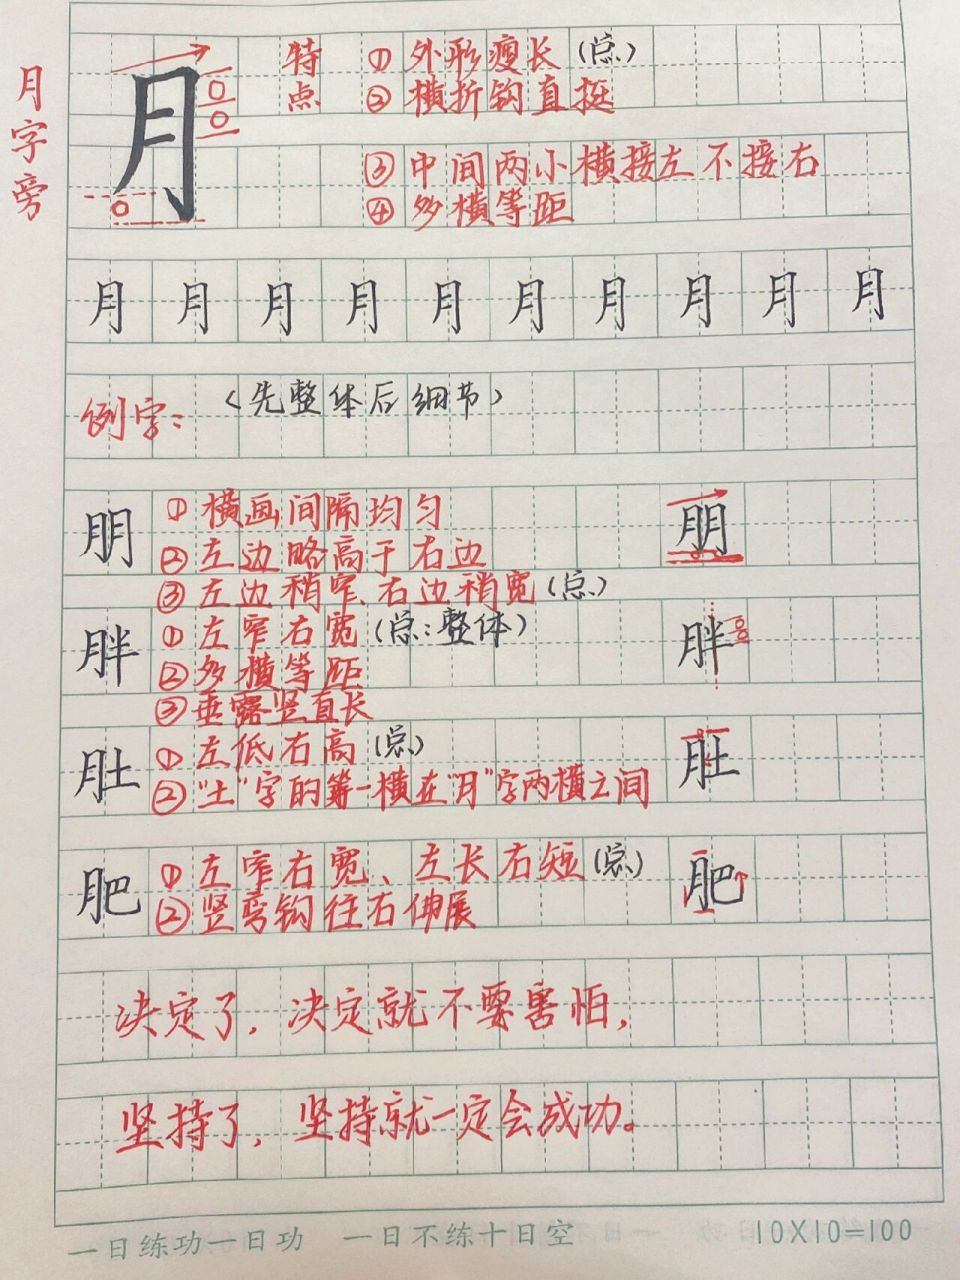 月字旁
月
特点
① 外形瘦长(总)
② 横折钩直挺
③ 中间两小横接左不接右
④ 多横等距
月 月 月 月 月 月 月 月 月 月
例字：(先整体后细节)
朋 ① 横画间隔均匀 朋
② 左边略高于右边
③ 左边稍窄、右边稍宽(总)
胖 ① 左窄右宽(总:整体) 胖
② 多横等距
③ 垂露竖直长
肚 ① 左低右高(总) 肚
② "土"字的第一横在"月"字两横之间
肥 ① 左窄右宽、左长右短(总) 肥
② 竖弯钩往右伸展
决定了，决定就不要害怕，
坚持了，坚持就一定会成功。
一日练功一日功 一日不练十日空 10X10=100